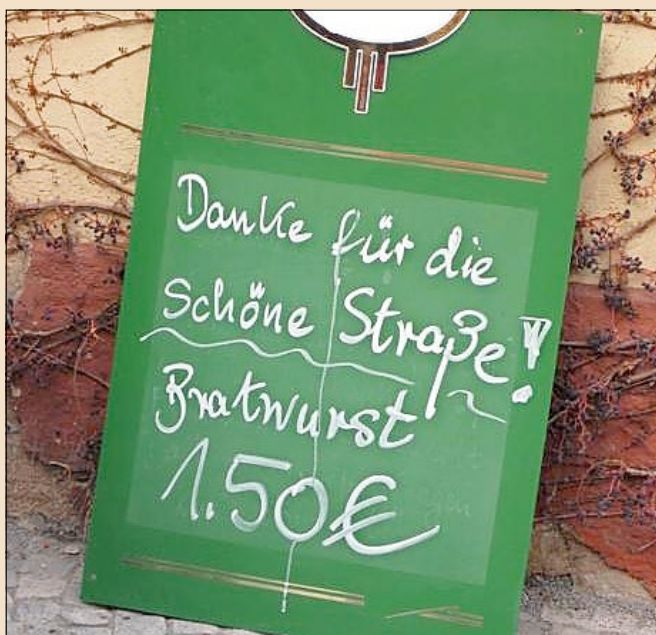 Danke für die
Schöne Straße!
Bratwurst
1.50€